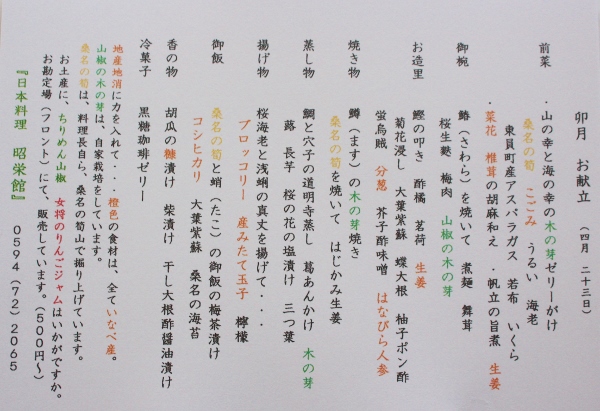 卯月 お献立 (四月 二十三日)
前菜 ・山の幸と海の幸の木の芽ゼリーがけ
桑名の筍 こごみ うるい 海老
東員町産アスパラガス 若布 いくら
・菜花 椎茸の胡麻和え ・帆立の旨煮 生姜
御椀 鰆(さわら)を焼いて 煮麺 舞茸
桜生麩 梅肉 山椒の木の芽
お造里 鰹の叩き 酢橘 茗荷 生姜
菊花浸し 大葉紫蘇 蝶大根 柚子ポン酢
蛍烏賊 分葱 芥子酢味噌 はなびら人参
焼き物 鱒(ます)の木の芽焼き
桑名の筍を焼いて はじかみ生姜
蒸し物 鯛と穴子の道明寺蒸し 葛あんかけ 木の芽
蕗 長芋 桜の花の塩漬け 三つ葉
揚げ物 桜海老と浅蜊の真丈を揚げて・・・
ブロッコリー 産みたて玉子 檸檬
御飯 桑名の筍と蛸(たこ)の御飯の梅茶漬け
コシヒカリ 大葉紫蘇 桑名の海苔
香の物 胡瓜の糠漬け 柴漬け 干し大根酢醤油漬け
冷菓子 黒糖珈琲ゼリー
地産地消に力を入れて・・・橙色の食材は、全ていなべ産。
山椒の木の芽は、自家栽培をしています。
桑名の筍は、料理長自ら、桑名の筍山で掘り上げています。
お土産に、ちりめん山椒 女将のりんごジャムはいかがですか。
お勘定場(フロント)にて、販売しています。(500円~)
『日本料理 昭栄館』 0594(72)2065